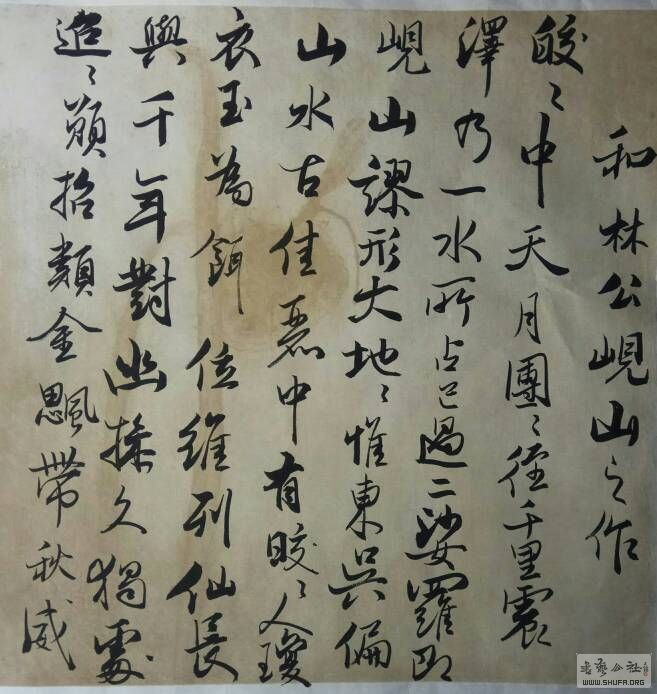 和林公峴山之作
皎〻中天月團〻徑千里震
澤乃一水所占已過二娑羅即
峴山謬形大地〻惟東吳偏
山水古佳麗中有皎〻人瓊
衣玉為餌位維列仙長
與千年對幽操久獨處
迢〻願招類金颸帶秋威
书艺公社
WWW.SHUFA.ORG